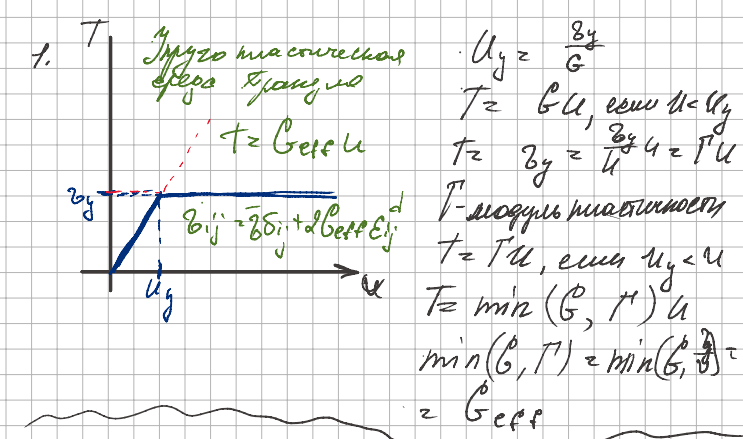 1.
T
Упруго пластическая
среда Прандтля
T = G_eff u
τ_y
τ_ij = τ̄δ_ij + 2G_eff ε_ij^d
u_y
u
u_y = τ_y / G
T = Gu, если u < u_y
T = τ_y = τ_y/u u = Гu
Г - модуль пластичности
T = Гu, если u_y < u
T = min (G, Г) u
min(G, Г) = min(G, τ_y/u) =
= G_eff